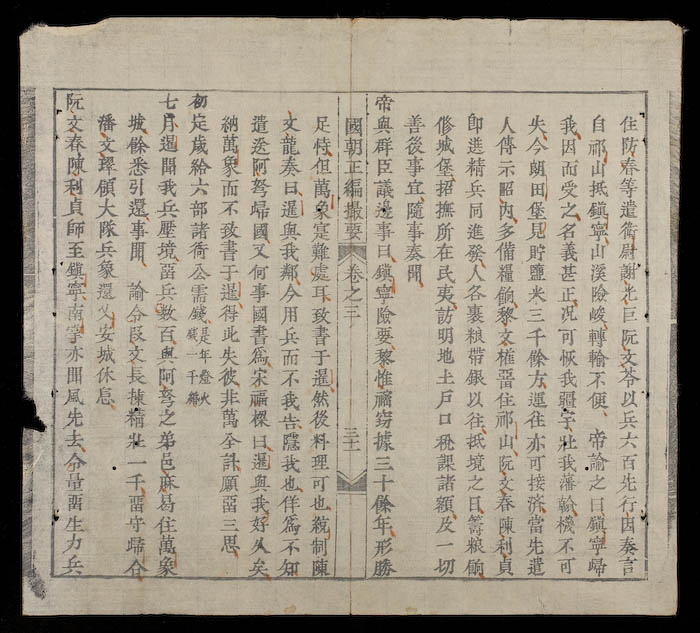 住防春等遣衛尉謝光巨阮文苓以兵六百先行因奏言
自祁山抵鎮寧山溪險峻轉輸不便 帝諭之曰鎮寧歸
我因而受之名義甚正况可恢我疆宇壯我藩翰機不可
失今朗田堡見貯鹽米三千餘方運往亦可接濟當先遣
人傳示昭內多備糧餉黎文權畱住祁山阮文春陳利貞
即進精兵同進發人各裹粮帶銀以往抵境之日籌粮餉
修城堡招撫所在民夷訪明地土戶口稅課諸額及一切
善後事宜隨事奏聞
帝與群臣議邊事曰鎮寧險要黎惟禶竊據三十餘年形勝
足恃但萬象寔難處耳致書于暹然後料理可也統制陳
文龍奏曰暹與我鄰今用兵而不我告隱我也佯爲不知
遣送阿弩歸國又何事國書爲宋福樑曰暹與我好久矣
納萬象而不致書于暹得此失彼非萬全計願畱三思
初定歲給六部諸衙公需錢是年燈火錢一千緡
七月暹聞我兵壓境畱兵數百與阿弩之弟邑麻曷住萬象
城餘悉引還事聞 諭令段文長揀精壯一千畱守歸合
潘文璻領大隊兵象還乂安城休息
阮文春陳利貞師至鎮寧南掌亦聞風先去令量畱生力兵
國朝正編撮要 卷之三 三十一